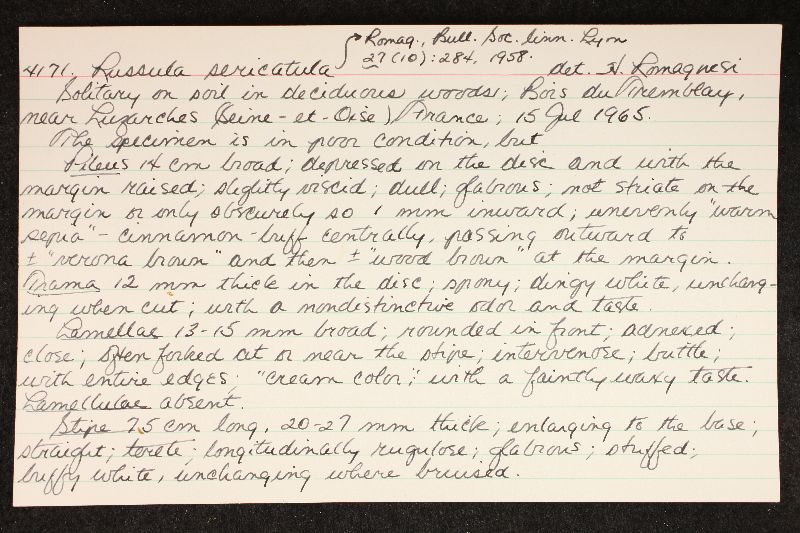 Romag., Bull. Soc. linn. Lyon
27(10): 284, 1958.
4171. Russula sericatula det. H. Romagnesi
Solitary on soil in deciduous woods; Bois du Tremblay,
near Luzarches (Seine-et-Oise) France; 15 Jul 1965.
The specimen is in poor condition, but
Pileus 14 cm broad; depressed on the disc and with the
margin raised; slightly viscid; dull; glabrous; not striate on the
margin or only obscurely so 1 mm inward; unevenly "warm
sepia" - cinnamon-buff centrally, passing outward to
± "verona brown" and then ± "wood brown" at the margin.
Trama 12 mm thick in the disc; spony; dingy white, unchang-
ing when cut; with a nondistinctive odor and taste.
Lamellae 13-15 mm broad; rounded in front; adnexed;
close; often forked at or near the stipe; intervenose; brittle;
with entire edges; "cream color;" with a faintly waxy taste.
Lamellulae absent.
Stipe 7.5 cm long, 20-27 mm thick; enlarging to the base;
straight; terete; longitudinally rugulose; glabrous; stuffed;
buffy white, unchanging where bruised.